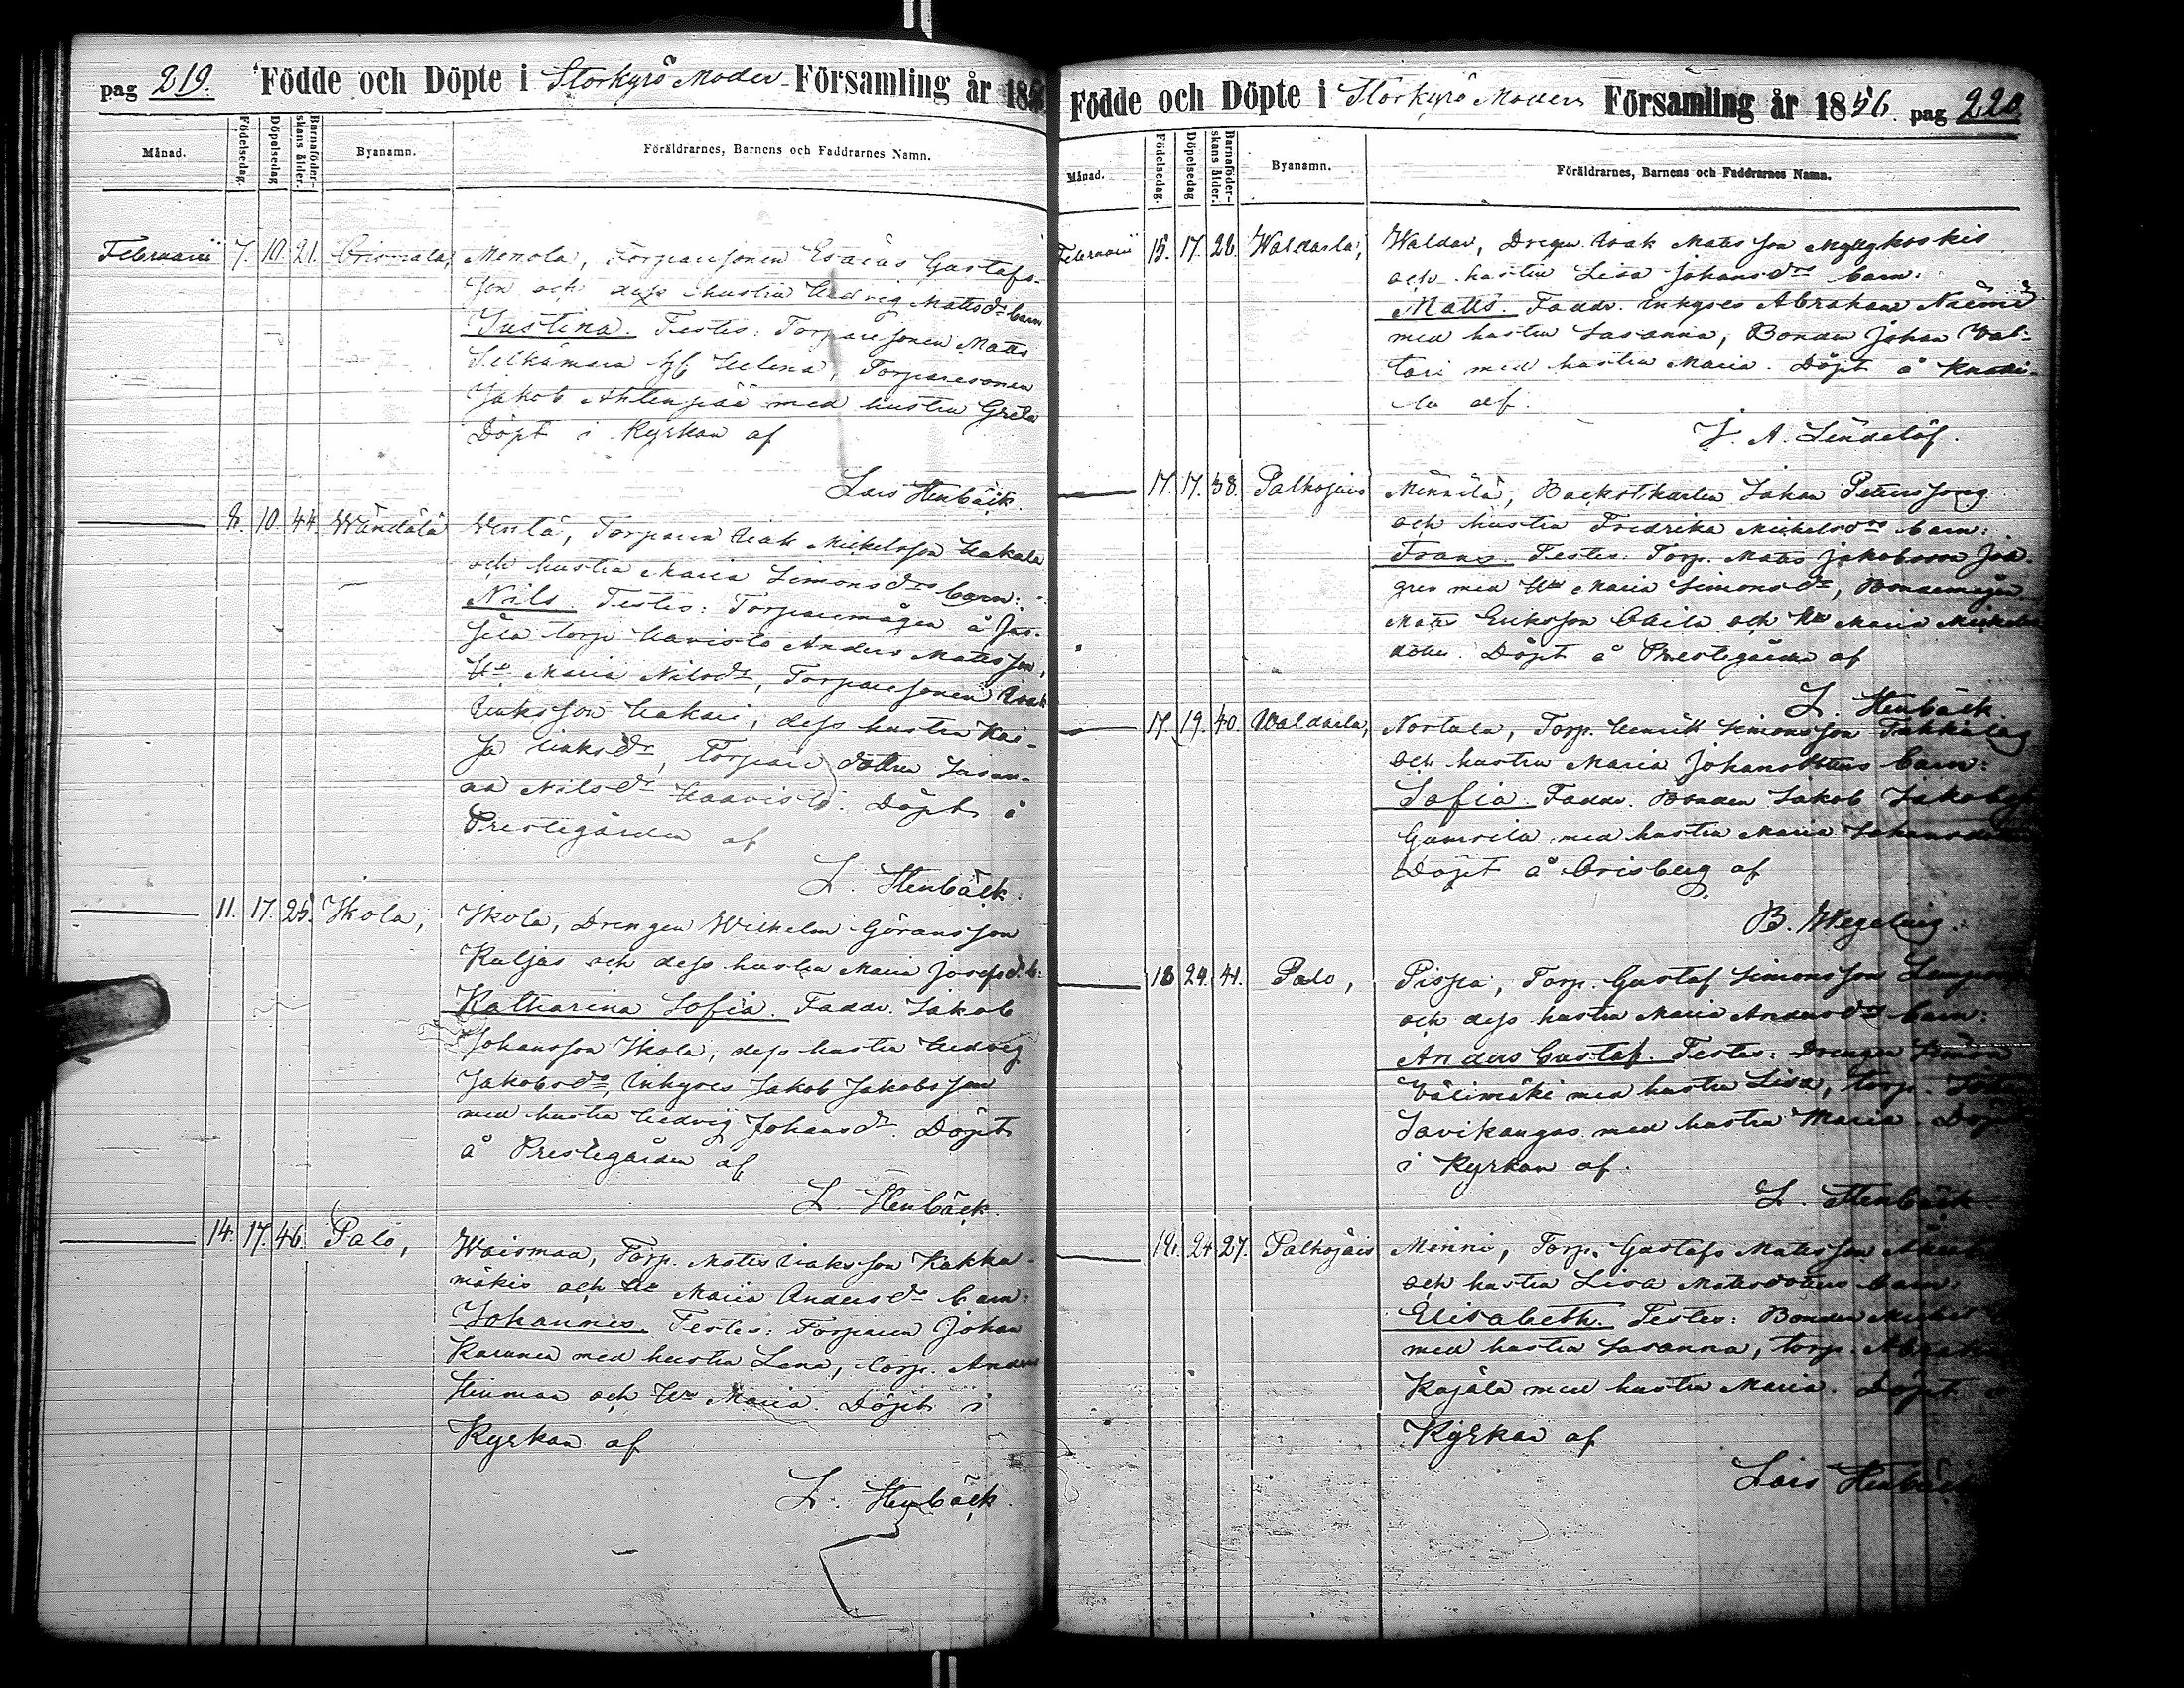 pag 219. Födde och Döpte i Storkyrö Moder Församling år 185
Månad. Födelsedag. Döpelsedag Barnaföderskans ålder. Byanamn. Föräldrarnes, Barnens och Faddrarnes Namn.
Februarii 7. 10. 21. Orismala, Menola, Torparesonen Esaias Gustafs-
son och dess hustru Hedvig Matsdr barn
Justina. Testes: Torparesonen Matts
Selkämaa Helena, Torparesonen
Jakob Ahtenpää med hustru Greta
Döpt i Kyrkan af
Lars Stenbäck.
8. 10. 44. Wändälä Wentä, Torparen Isak Mickelsson Hakala
och hustru Maria Simonsdrs barn:
Nils. Testes: Torparemågen å Jus-
sila torp Haavisto Anders Matsson,
Hu Maria Nilsdr, Torparesonen Isak
Isaksson Hakari, dess hustru Kai-
sa Isaksdr, Torpare dottren Susan-
na Nilsdr Haavisto. Döpt å
Prestegården af
L. Stenbäck.
11. 17. 25. Ikola, Ikola, Drengen Wilhelm Göransson
Kuljas och dess hustru Maria Josefsdr b:
Katharina Sofia. Faddr. Jakob
Johansson Ikola, dess hustru Hedvig
Jakobsdr, Inhyses Jakob Jakobsson
med hustru Hedvig Johansdr. Döpt
å Prestegården af
L. Stenbäck.
14. 17. 46. Palo, Waismaa, Torp. Matts Isaksson Kakku-
mäkis och Hu Maria Andersdrs barn:
Johannes. Testes: Torparen Johan
Karunen med hustru Lena, torp. Anders
Hinmaa och Hu Maria. Döpt i
Kyrkan af
L. Stenbäck.
Födde och Döpte i Storkyrö Moders Församling år 1856. pag 220
Månad. Födelsedag. Döpelsedag Barnaföderskans ålder. Byanamn. Föräldrarnes, Barnens och Faddrarnes Namn.
Februarii 15. 17. 26. Waldarla, Waldar, Drgen Isak Mattsson Myllykoskis
och hustru Lisa Johansdrs barn:
Matts. Faddr. Inhyses Abraham
med hustru Susanna, Bonden Johan Val-
tari med hustru Maria. Döpt å
la af.
J. A. Lindelöf.
17. 17. 38. Palhojais Minnilä, Backstukarlen Johan Peterssons
och hustru Fredrika Mickelsdrs barn:
Frans. Testes: Torp. Matts Jakobsson
gren med Hu Maria Simonsdr, Bondemågen
Matts Eriksson och Hu Maria Mickels
dotter. Döpt å Prestegården af
L. Stenbäck
17. 19. 40. Waldarla, Nortala, Torp. Henrik Simonsson
och hustru Maria Johansdotters barn:
Sofia. Faddr. Bonden Jakob Jakobss
med hustru Maria Johansd
Döpt å Orisberg af
B. Wegelius.
18 24. 41. Palo, Pispa, Torp. Gustaf Simonsson
och dess hustru Maria Andersdrs barn:
Anders Gustaf. Testes: Drengen Simon
Välimäki med hustru Lisa, torp.
Savikangas med hustru Maria. Döpt
i Kyrkan af
L. Stenbäck
18. 24 27. Palhojais Minni, Torp. Gustafs Mattsson
och hustru Lisa Mattsdotters barn:
Elisabeth. Testes: Bonden
med hustru Susanna, torp.
Kojala med hustru Maria. Döpt
Kyrkan af
Lars Stenbäck